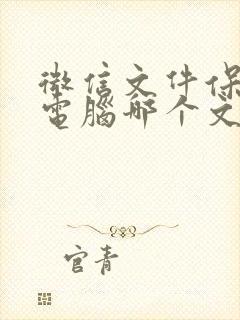 微信文件保
电脑哪个文
官青